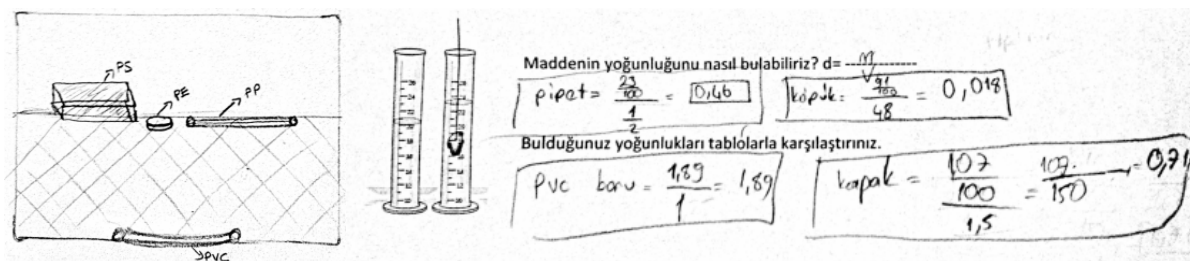 PS
PE
PP
PVC
Maddenin yoğunluğunu nasıl bulabiliriz? d= m/V
pipet = 23/100 / 1/2 = 0,46
köpük = 91/100 / 48 = 0,018
Bulduğunuz yoğunlukları tablolarla karşılaştırınız.
PVC boru = 1,89/1 = 1,89
kapak = 107/100 / 1,5 = 107/150 = 0,71